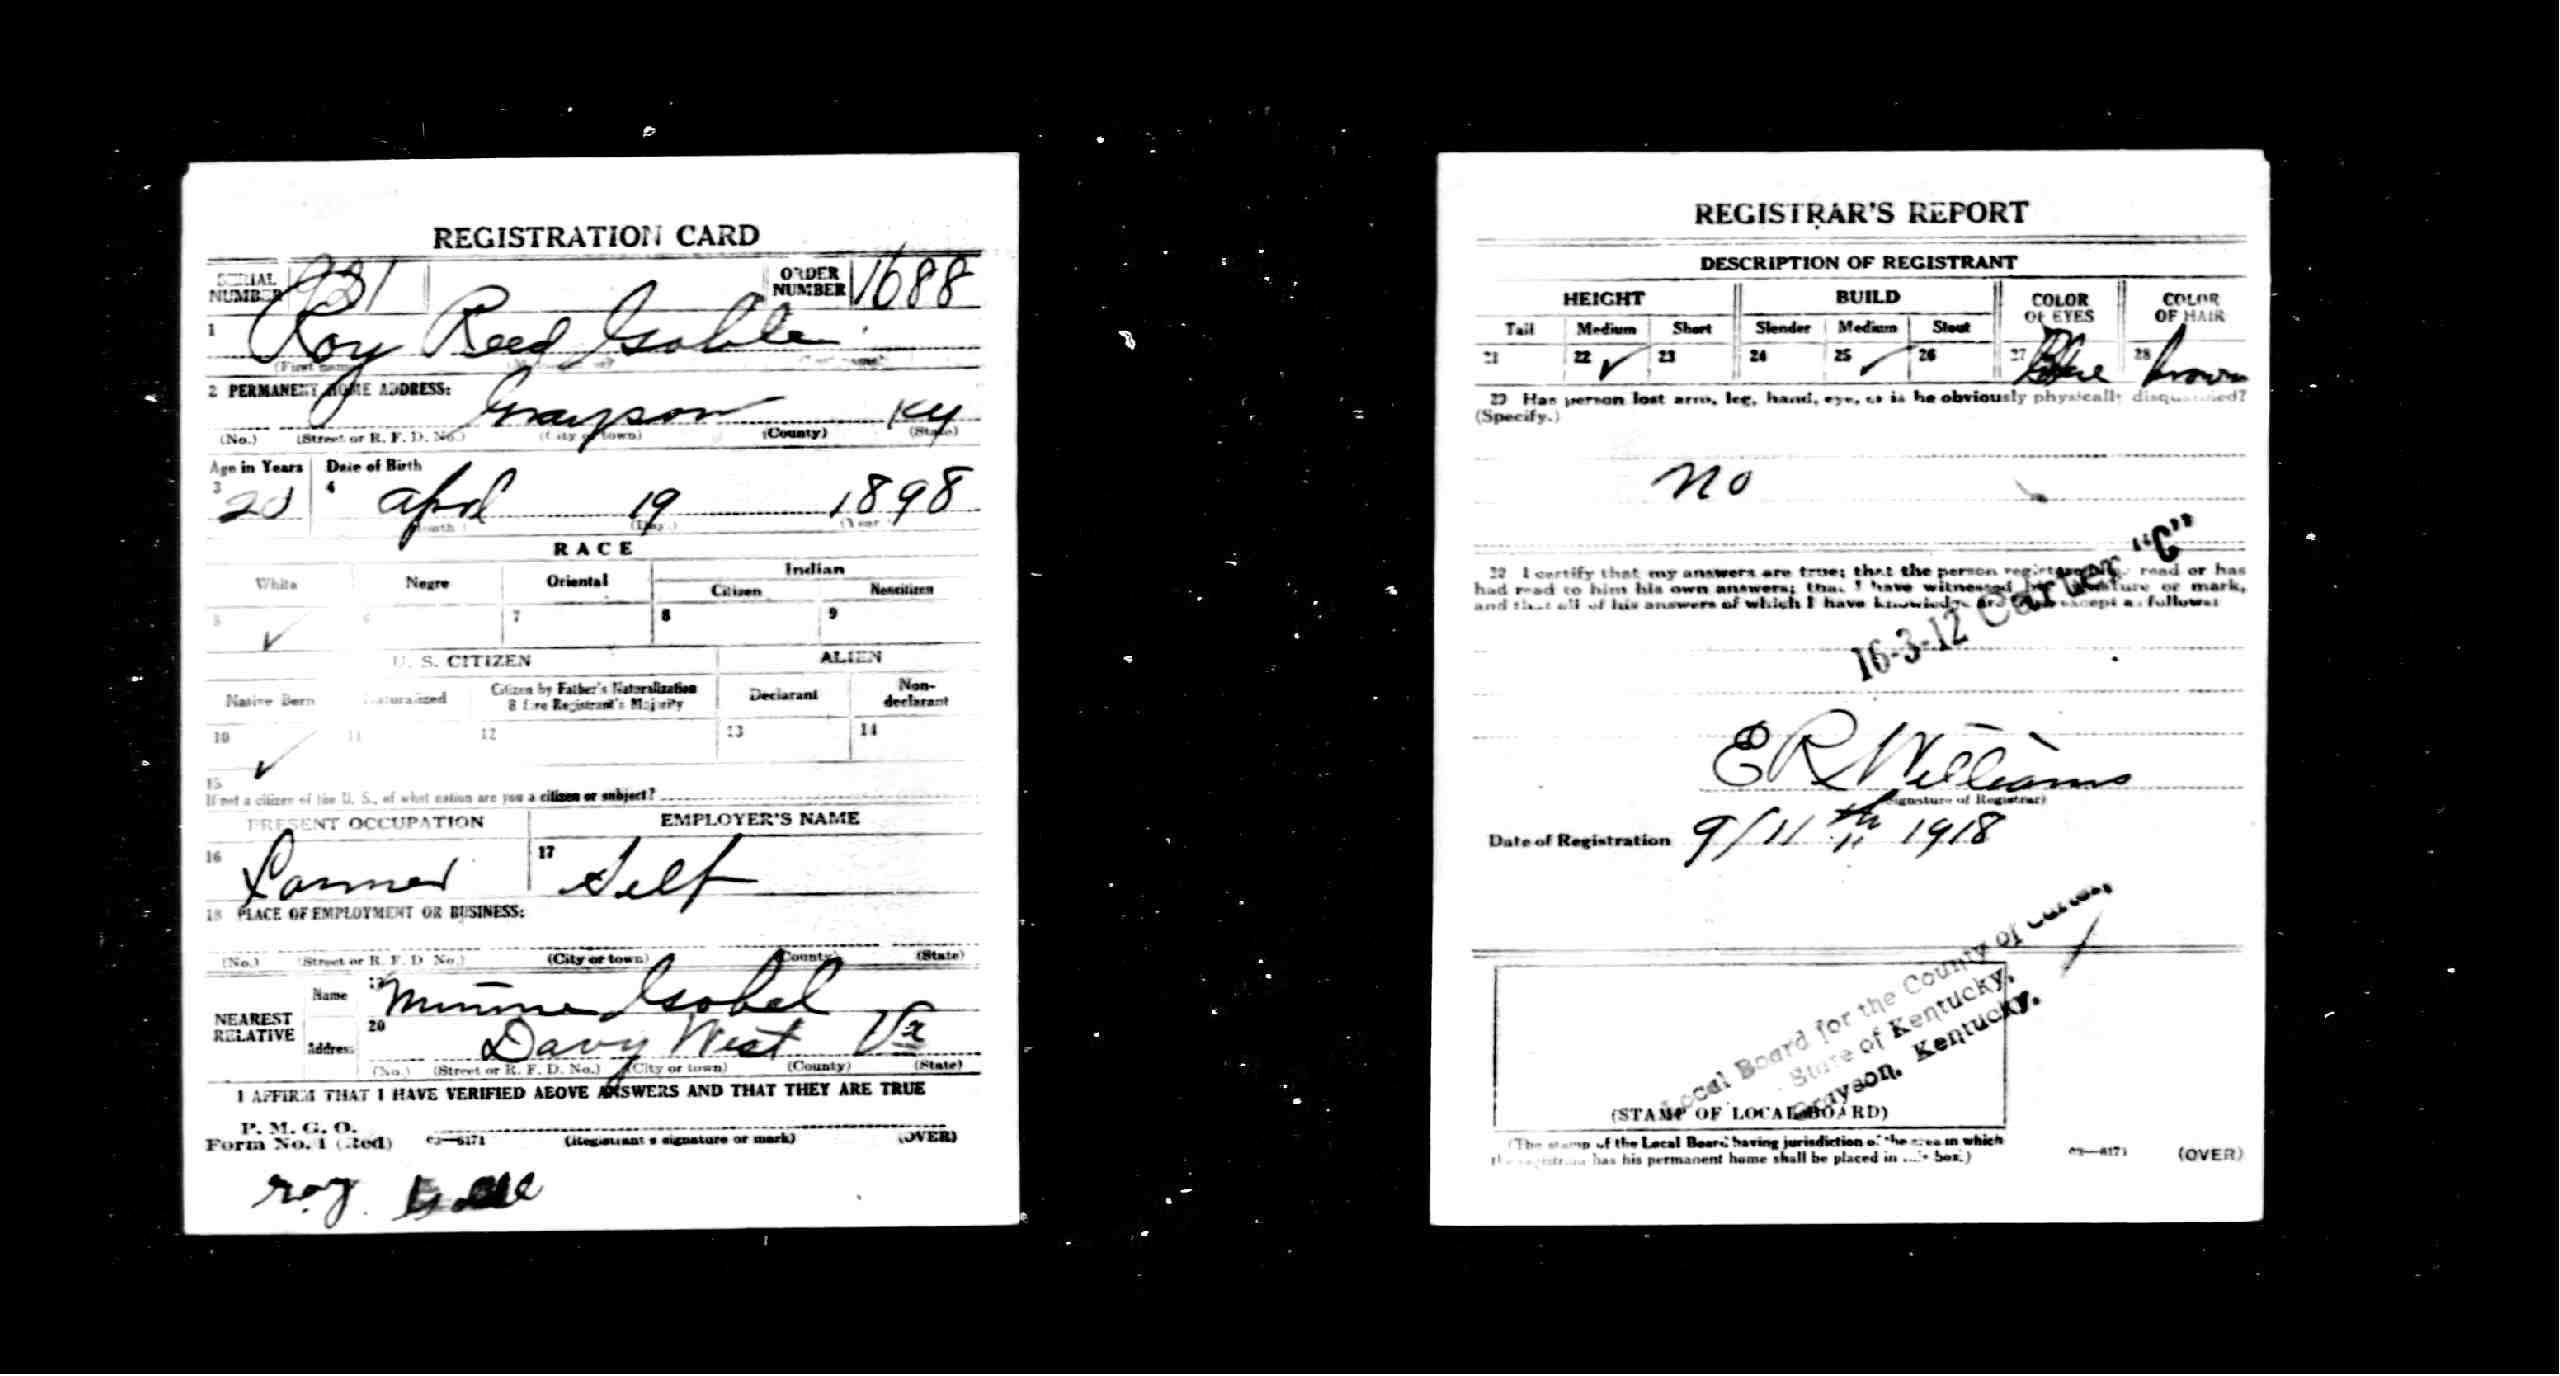 REGISTRATION CARD
SERIAL NUMBER 931 ORDER NUMBER 1688
1 Roy Reed Goble
(First name)
2 PERMANENT HOME ADDRESS:
Grayson Ky
(No.) (Street or R. F. D. No.) (City or town) (County) (State)
Age in Years Date of Birth
3 20 4 April 19 1898
(Month.) (Day.) (Year.)
RACE
White Negro Oriental Indian
Citizen Noncitizen
5 ✓ 6 7 8 9
U. S. CITIZEN ALIEN
Native Born Naturalized Citizen by Father's Naturalization Before Registrant's Majority Declarant Non-declarant
10 ✓ 11 12 13 14
15
If not a citizen of the U. S., of what nation are you a citizen or subject?
PRESENT OCCUPATION EMPLOYER'S NAME
16 Farmer 17 Self
18 PLACE OF EMPLOYMENT OR BUSINESS:
(No.) (Street or R. F. D. No.) (City or town) (County) (State)
NEAREST RELATIVE Name 19 Minnie Gobel
Address 20 Davy West Va
(No.) (Street or R. F. D. No.) (City or town) (County) (State)
I AFFIRM THAT I HAVE VERIFIED ABOVE ANSWERS AND THAT THEY ARE TRUE
P. M. G. O.
Form No. 1 (Red) 03—6171 (Registrant's signature or mark) (OVER)
roy
REGISTRAR'S REPORT
DESCRIPTION OF REGISTRANT
HEIGHT BUILD COLOR OF EYES COLOR OF HAIR
Tall Medium Short Slender Medium Stout
21 22 ✓ 23 24 25 ✓ 26 27 Blue 28 brown
29 Has person lost arm, leg, hand, eye, or is he obviously physically disqualified?
(Specify.)
no
30 I certify that my answers are true; that the person registered has read or has
had read to him his own answers; that I have witnessed his signature or mark,
and that all of his answers of which I have knowledge are true, except as follows:
16-3-12 Carter "C"
E R Williams
(Signature of Registrar)
Date of Registration 9/11th 1918
Local Board for the County of Carter,
State of Kentucky,
Grayson, Kentucky.
(STAMP OF LOCAL BOARD)
(The stamp of the Local Board having jurisdiction of the area in which
the registrant has his permanent home shall be placed in this box.)
03—6171 (OVER)